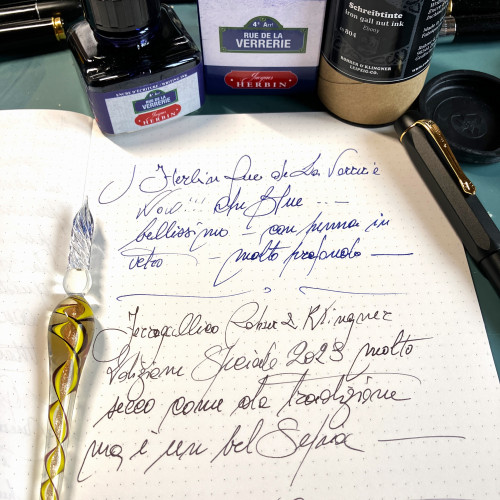 4e Arrt
RUE DE LA
VERRERIE
Jacques
HERBIN
RUE DE LA
VERRERIE
Jacques
HERBIN
Schreibtinte
Iron gall nut ink
ROHRER & KLINGNER
LEIPZIG CO.
J Herbin Rue de La Verrerie
Wow!!! che Blue ...
bellissimo - con penna in
vetro - molto profondo
Ferrogallico Rohrer & Klingner
Edizione Speciale 2023 molto
secco come da tradizione
ma è un bel Sepia